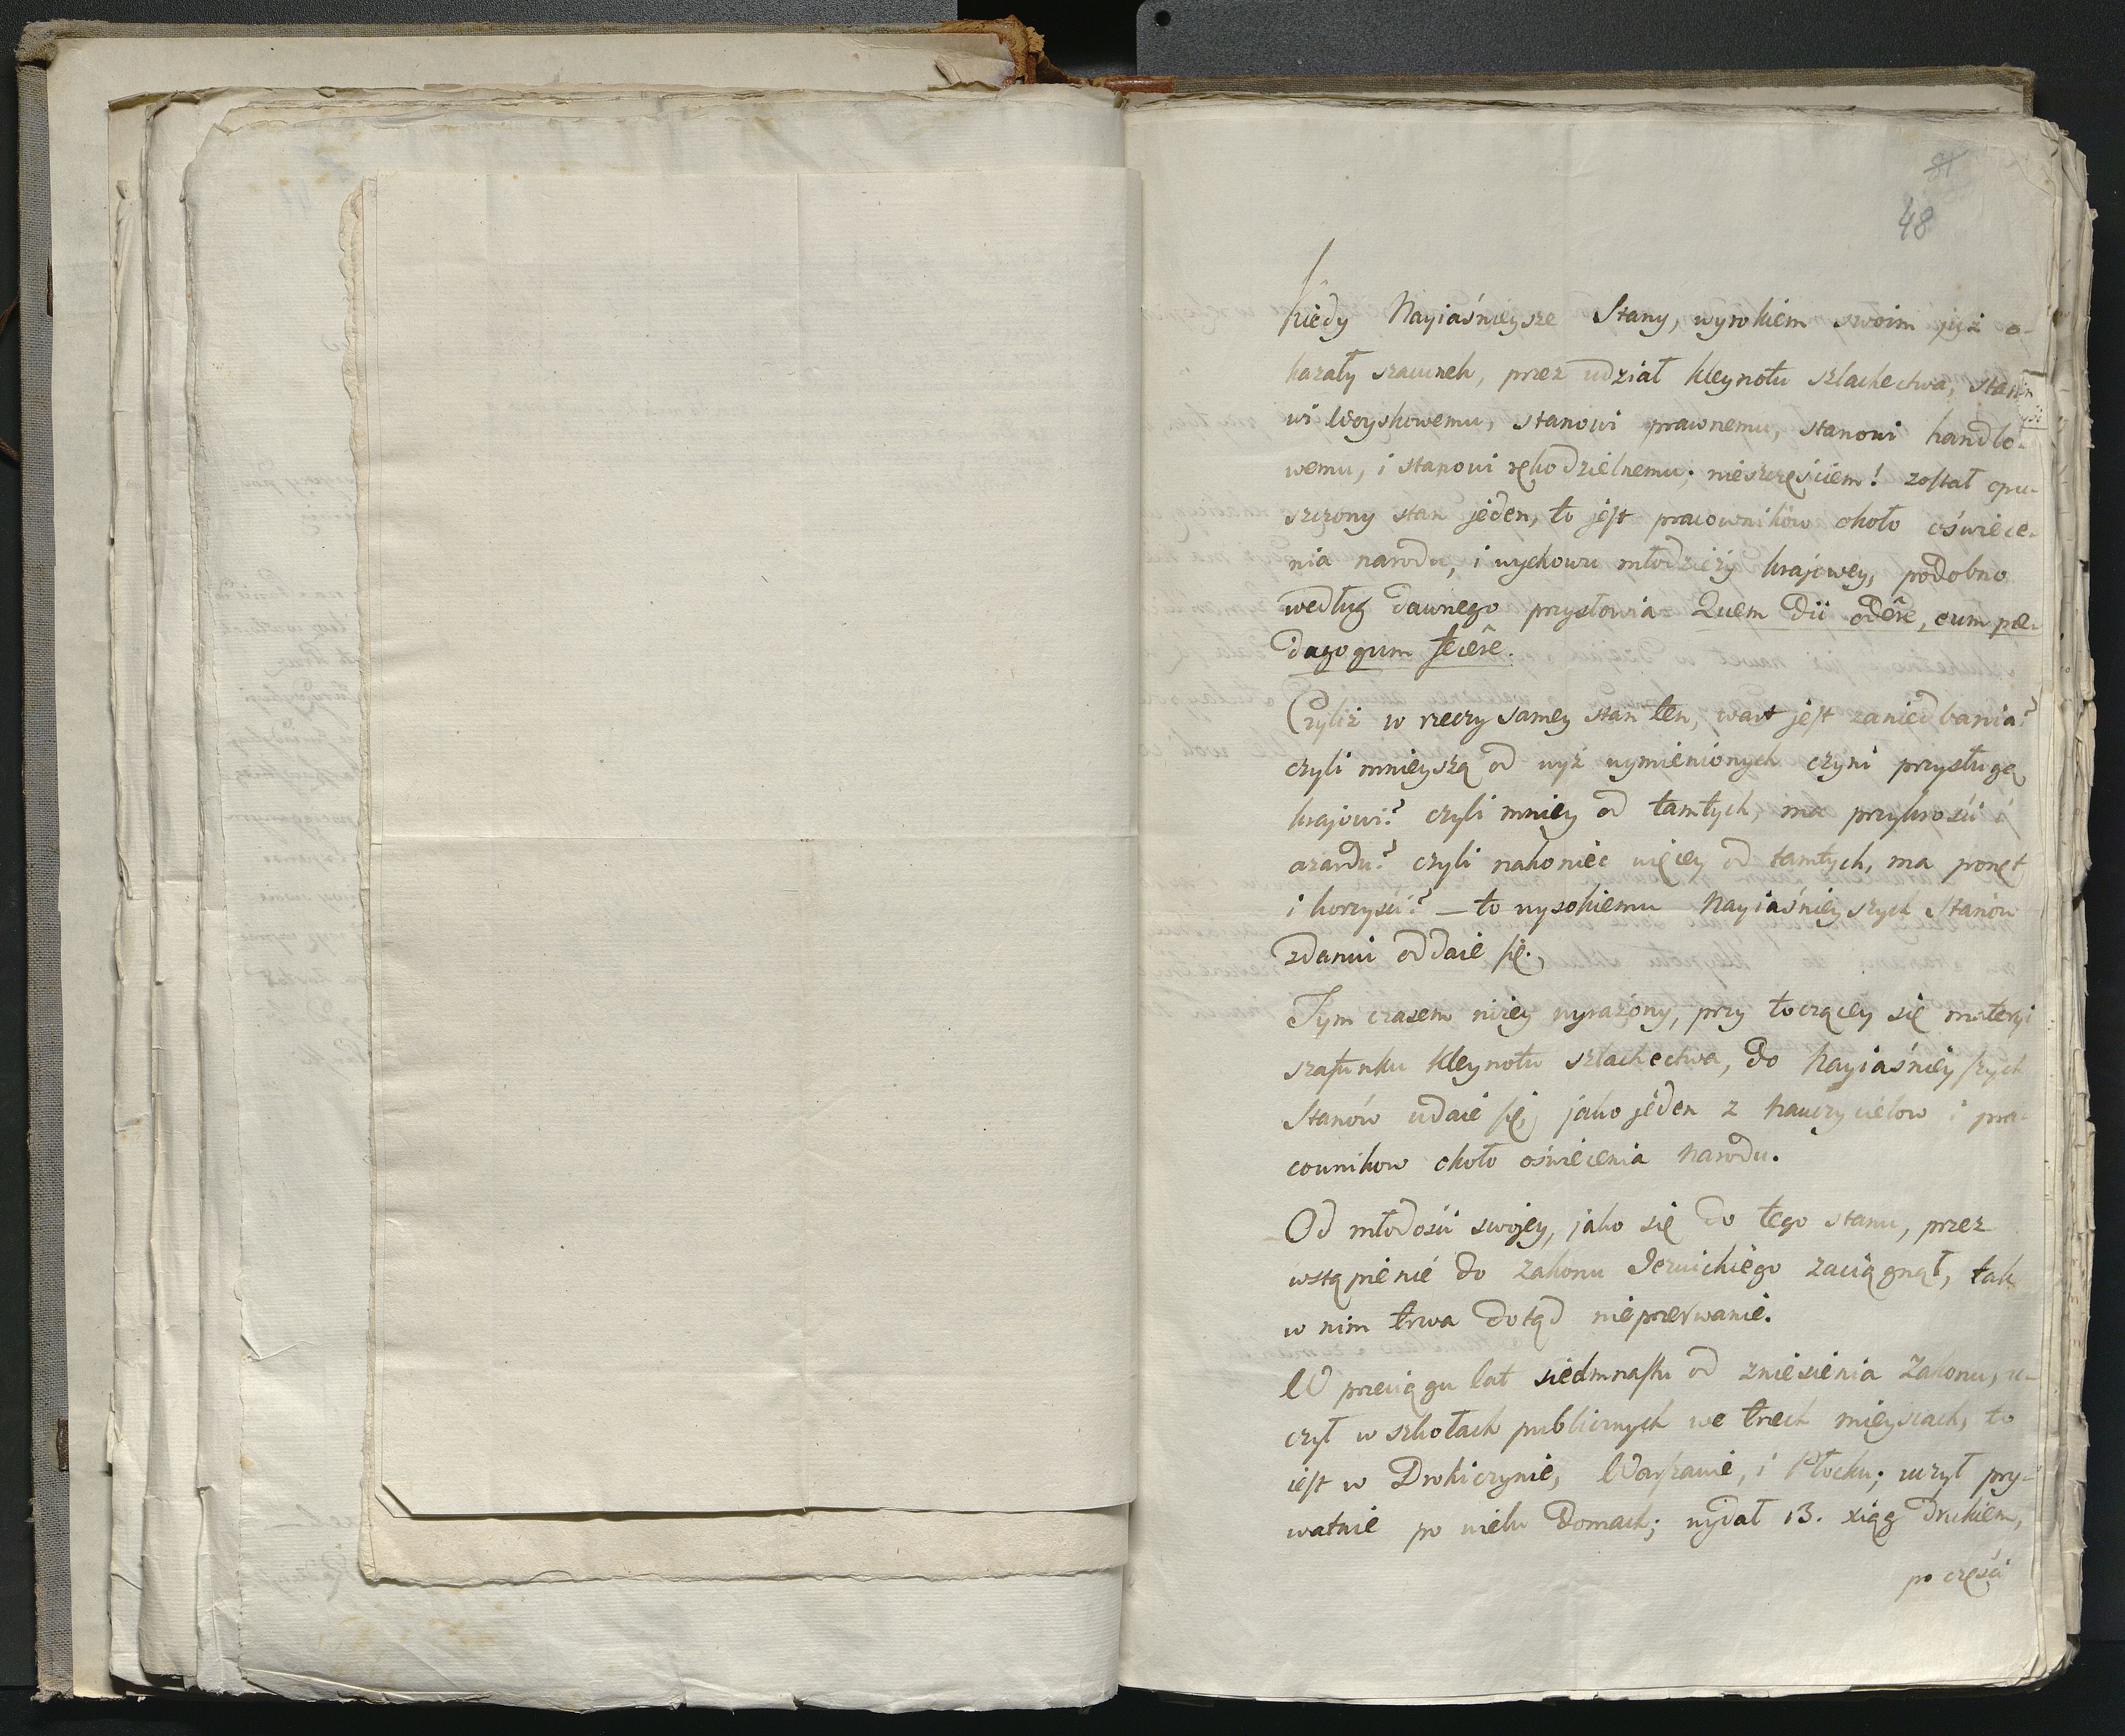 81
48
Kiedy Nayiaśnieysze Stany, wyrokiem swoim już o-
kazały szacunek, przez udział kleynotu szlachectwa, stano
wi Woyskowemu, stanowi prawnemu, stanowi handlo-
wemu, i stanowi rękodzielnemu: nieszczęściem! został opu-
szczony stan jeden, to jest pracowników około oświece-
nia narodu, i wychowu młodzieży krajowey, podobno
według dawnego przysłowia Quem Dii odêre, eum pæ-
dagogum fecêre.
Czyliż w rzeczy samey stan ten, wart jest zaniedbania?
czyli mnieyszą od wyż wymienionych czyni przysługę
krajowi? czyli mniey od tamtych, ma przykrości i
azardu? czyli nakoniec więcey od tamtych, ma ponęt
i korzyści? — to wysokiemu Nayiaśnieyszych Stanow
zdaniu oddaie się.
Tym czasem niżey wyrażony, przy toczącey się materyi
szafunku kleynotu szlachectwa, do Nayiaśnieyszych
Stanów udaie się, jako jeden z Nauczycielow i pra-
cownikow około oświecenia Narodu.
Od młodości swojey, jako się do tego stanu, przez
wstąpienie do Zakonu Jezuickiego zaciągnął, tak
w nim trwa dotąd nieprzerwanie.
W przeciągu lat siedmnastu od zniesienia Zakonu, u-
czył w szkołach publicznych we trzech mieyscach, to
iest w Drohiczynie, Warszawie, i Płocku; uczył pry-
watnie po wielu Domach; wydał 13. xiąg Drukiem,
po części